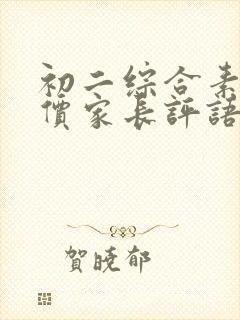 初二綜合素
價家長評語
賀曉郁